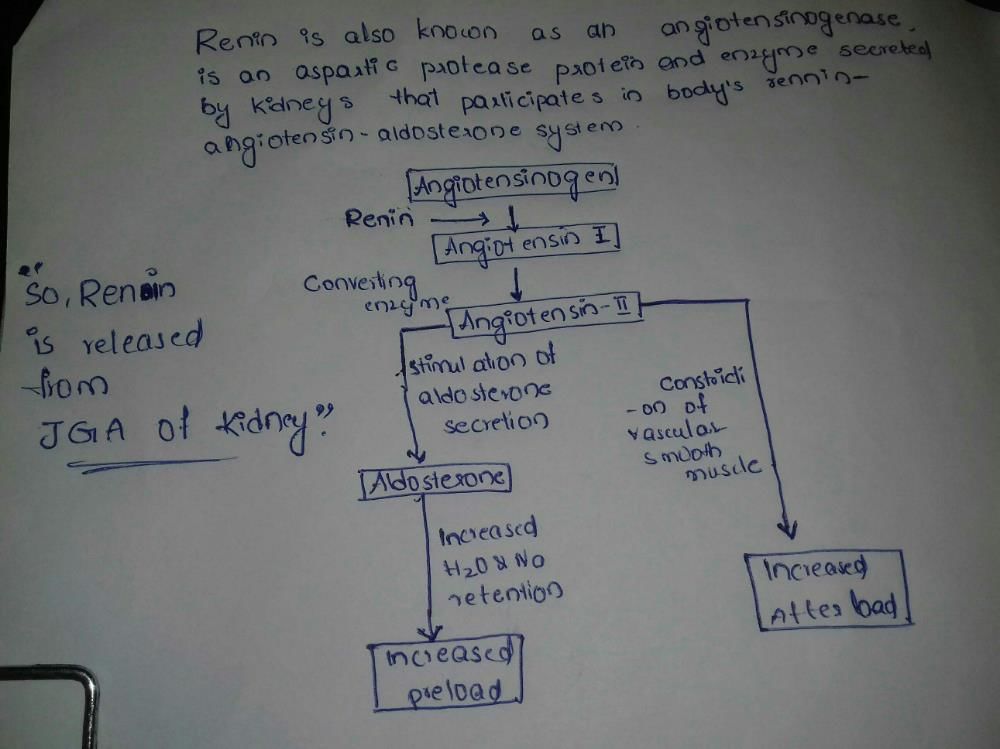 Renin is also known as an angiotensinogenase,
is an aspartic protease protein and enzyme secreted
by kidneys that participates in body's rennin-
angiotensin-aldosterone system.
Angiotensinogen
Renin
Angiotensin I
Converting
enzyme
Angiotensin-II
"So, Renin
is released
from
JGA of kidney"
stimulation of
aldosterone
secretion
Constricti
-on of
vascular
smooth
muscle
Aldosterone
Increased
H2O & Na
retention
Increased
After load
Increased
preload